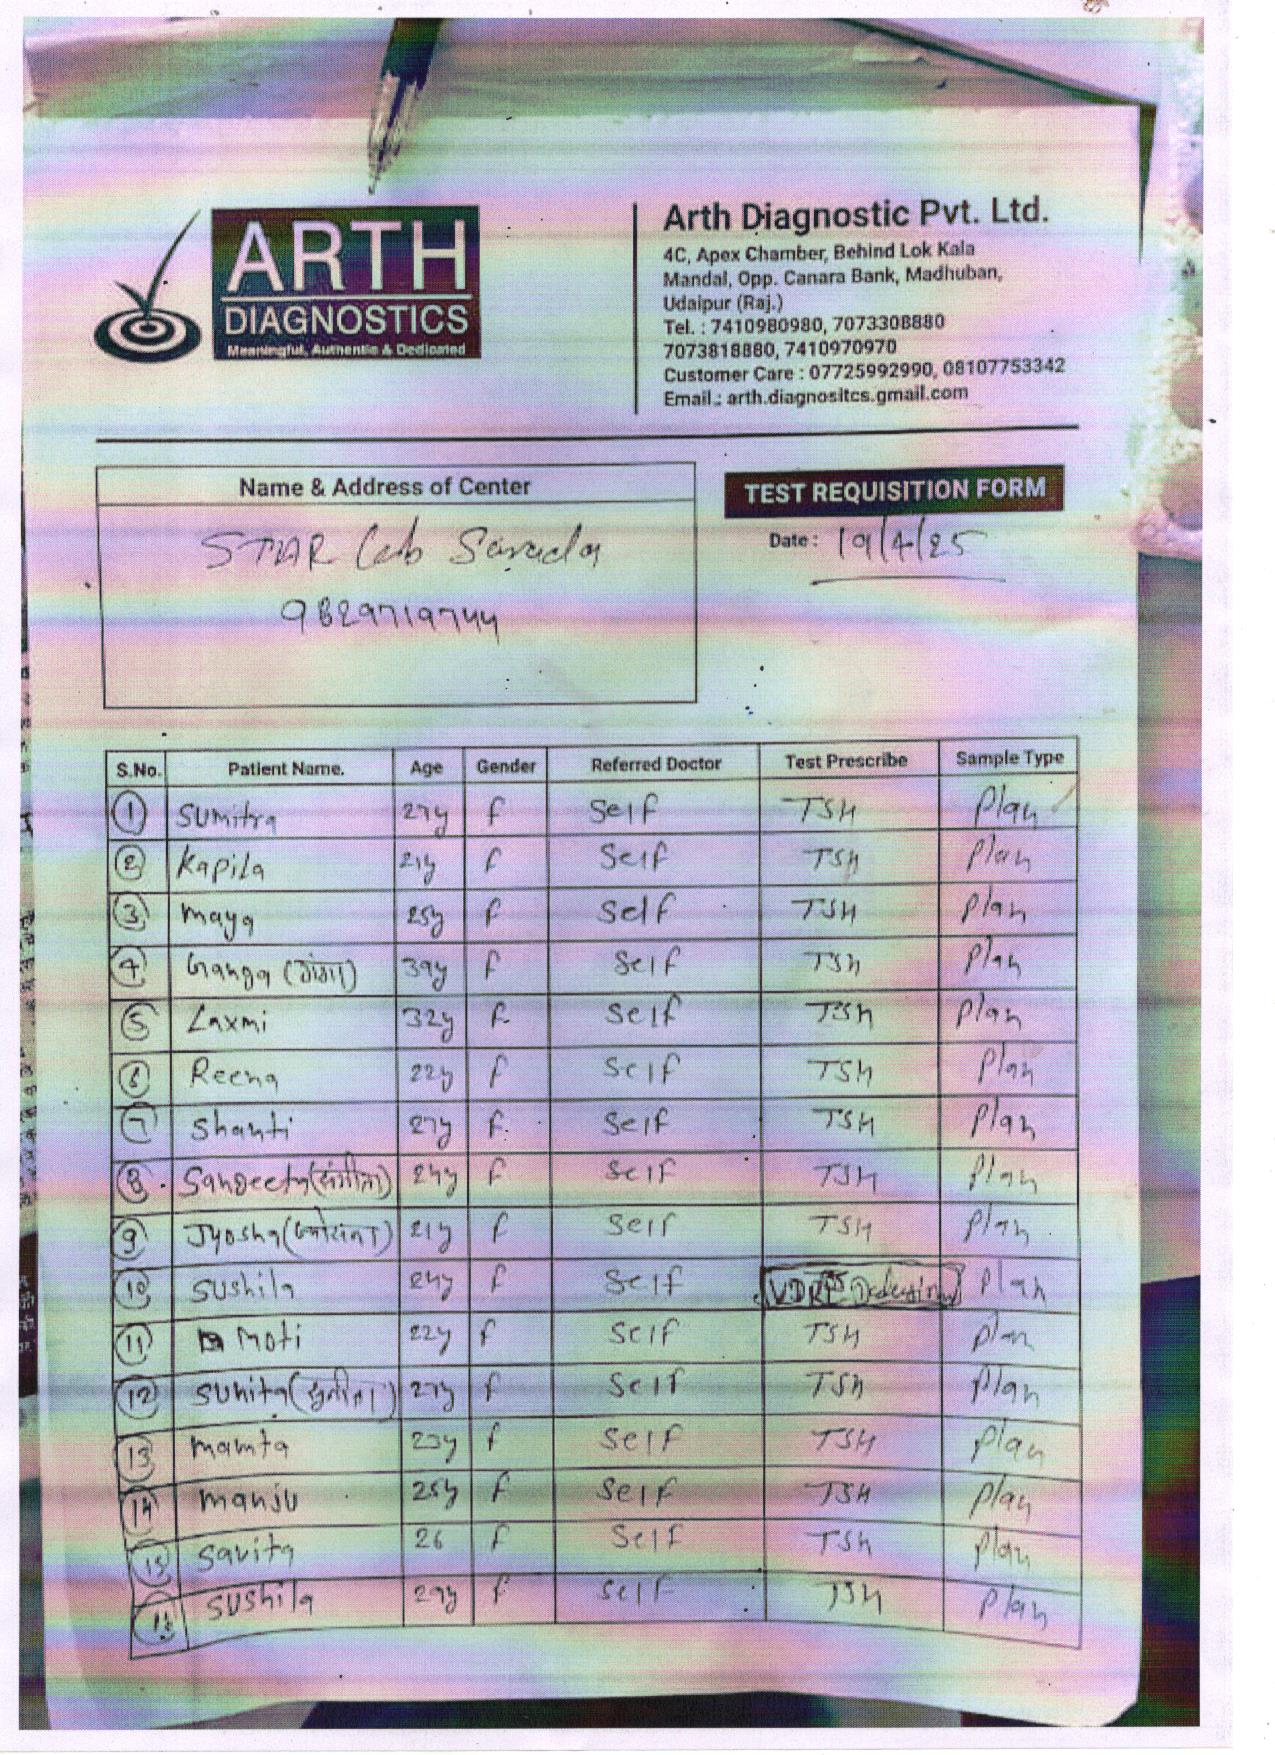 ARTH
DIAGNOSTICS
Meaningful, Authentic & Dedicated
Arth Diagnostic Pvt. Ltd.
4C, Apex Chamber, Behind Lok Kala
Mandal, Opp. Canara Bank, Madhuban,
Udaipur (Raj.)
Tel. : 7410980980, 7073308880
7073818880, 7410970970
Customer Care : 07725992990, 08107753342
Email : arth.diagnositcs.gmail.com
Name & Address of Center
STAR Lab Sarada
9829719744
TEST REQUISITION FORM
Date : 19/4/25
S.No. Patient Name. Age Gender Referred Doctor Test Prescribe Sample Type
1 Sumitra 27y f Self TSH Plan
2 Kapila 21y f Self TSH Plan
3 Maya 25y f Self TSH Plan
4 Ganga (गंगा) 39y f Self TSH Plan
5 Laxmi 32y f Self TSH Plan
6 Reena 22y f Self TSH Plan
7 Shanti 27y f Self TSH Plan
8 Sangeeta (संगीता) 24y f Self TSH Plan
9 Jyosna 21y f Self TSH Plan
10 Sushila 24y f Self VDRL Plan
11 Moti 22y f Self TSH Plan
12 Sunita (सुनीता) 27y f Self TSH Plan
13 Mamta 23y f Self TSH Plan
14 Manju 25y f Self TSH Plan
15 Savita 26 f Self TSH Plan
16 Sushila 29y f Self TSH Plan